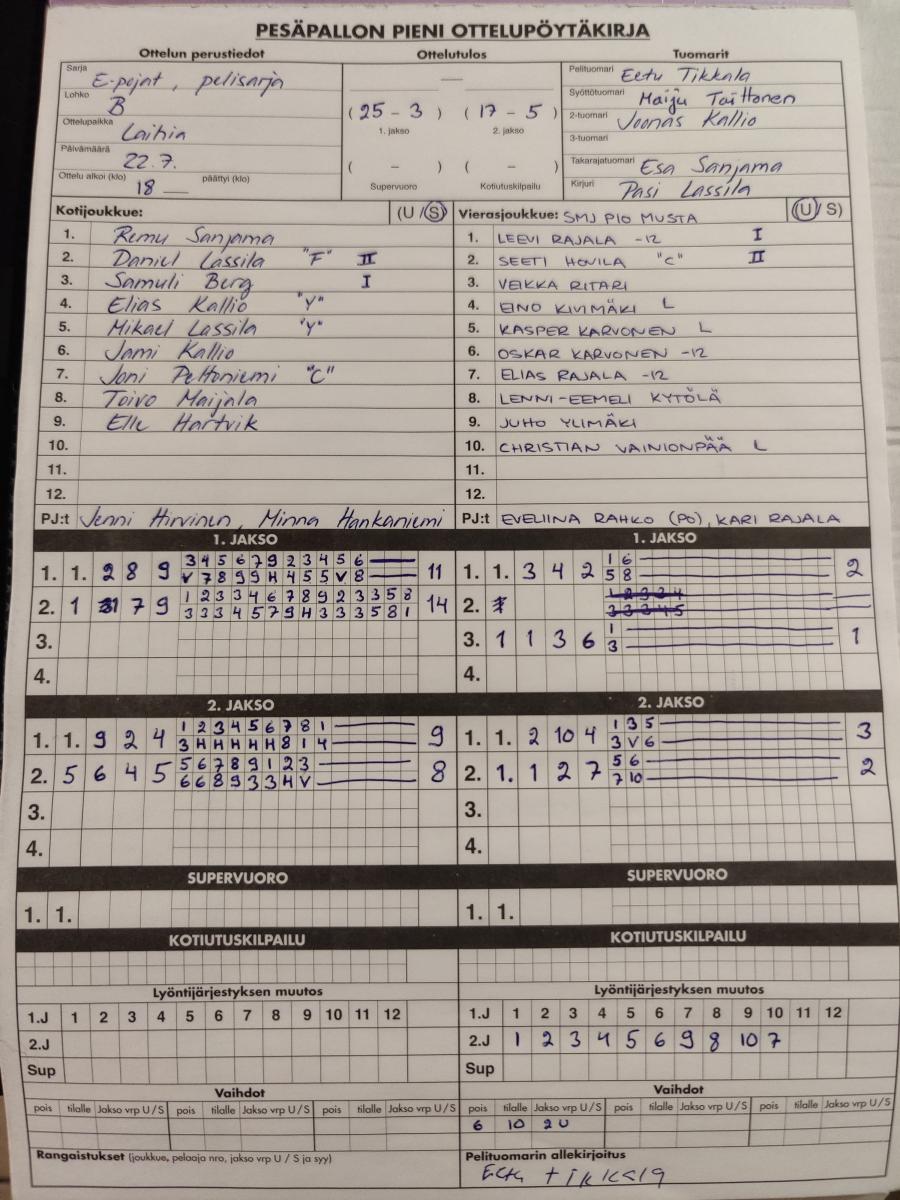 PESÄPALLON PIENI OTTELUPÖYTÄKIRJA
Ottelun perustiedot Ottelutulos Tuomarit
Sarja E-pojat, pelisarja
Lohko B
Ottelupaikka Laihia
Päivämäärä 22.7.
Ottelu alkoi (klo) 18 päättyi (klo)
( 25 - 3 ) ( 17 - 5 )
1. jakso 2. jakso
( - ) ( - )
Supervuoro Kotiutuskilpailu
Pelituomari Eetu Tikkala
Syöttötuomari Maiju Taittonen
2-tuomari Joonas Kallio
3-tuomari
Takarajatuomari Esa Sanjama
Kirjuri Pasi Lassila
Kotijoukkue: (U / S)
1. Remu Sanjama
2. Daniel Lassila "F" II
3. Samuli Berg I
4. Elias Kallio "Y"
5. Mikael Lassila "Y"
6. Jami Kallio
7. Joni Peltoniemi "C"
8. Toivo Maijala
9. Elle Hartvik
10.
11.
12.
PJ:t Jenni Hirvinen, Minna Hankaniemi
Vierasjoukkue: SMJ P10 MUSTA (U / S)
1. LEEVI RAJALA -12 I
2. SEETI HOVILA "C" II
3. VEIKKA RITARI
4. EINO KIVIMÄKI L
5. KASPER KARVONEN L
6. OSKAR KARVONEN -12
7. ELIAS RAJALA -12
8. LENNI-EEMELI KYTÖLÄ
9. JUHO YLIMÄKI
10. CHRISTIAN VAINIONPÄÄ L
11.
12.
PJ:t EVELIINA RAHKO (PO), KARI RAJALA
1. JAKSO
3 4 5 6 7 9 2 3 4 5 6
1. 1. 2 8 9 11
V 7 8 9 9 H 4 5 5 V 8
1 2 3 3 4 6 7 8 9 2 3 3 5 8
2. 1 7 9 14
3 3 3 4 5 7 9 H 3 3 3 5 8 1
3.
4.
1. JAKSO
1 6
1. 1. 3 4 2 2
5 8
1 2 3 3 4
2.
3 3 3 4 5
1
3. 1 1 3 6 1
3
4.
2. JAKSO
1 2 3 4 5 6 7 8 1
1. 1. 9 2 4 9
3 H H H H H 8 1 4
5 6 7 8 9 1 2 3
2. 5 6 4 5 8
6 6 8 9 3 3 H V
3.
4.
2. JAKSO
1 3 5
1. 1. 2 10 4 3
3 V 6
5 6
2. 1. 1 2 7 2
7 10
3.
4.
SUPERVUORO SUPERVUORO
1. 1. 1. 1.
KOTIUTUSKILPAILU KOTIUTUSKILPAILU
Lyöntijärjestyksen muutos
1.J 1 2 3 4 5 6 7 8 9 10 11 12
2.J
Sup
Lyöntijärjestyksen muutos
1.J 1 2 3 4 5 6 7 8 9 10 11 12
2.J 1 2 3 4 5 6 9 8 10 7
Sup
Vaihdot
pois tilalle Jakso vrp U / S pois tilalle Jakso vrp U / S pois tilalle Jakso vrp U / S
Vaihdot
pois tilalle Jakso vrp U / S pois tilalle Jakso vrp U / S pois tilalle Jakso vrp U / S
6 10 2U
Rangaistukset (joukkue, pelaaja nro, jakso vrp U / S ja syy)
Pelituomarin allekirjoitus
Eetu tikkala